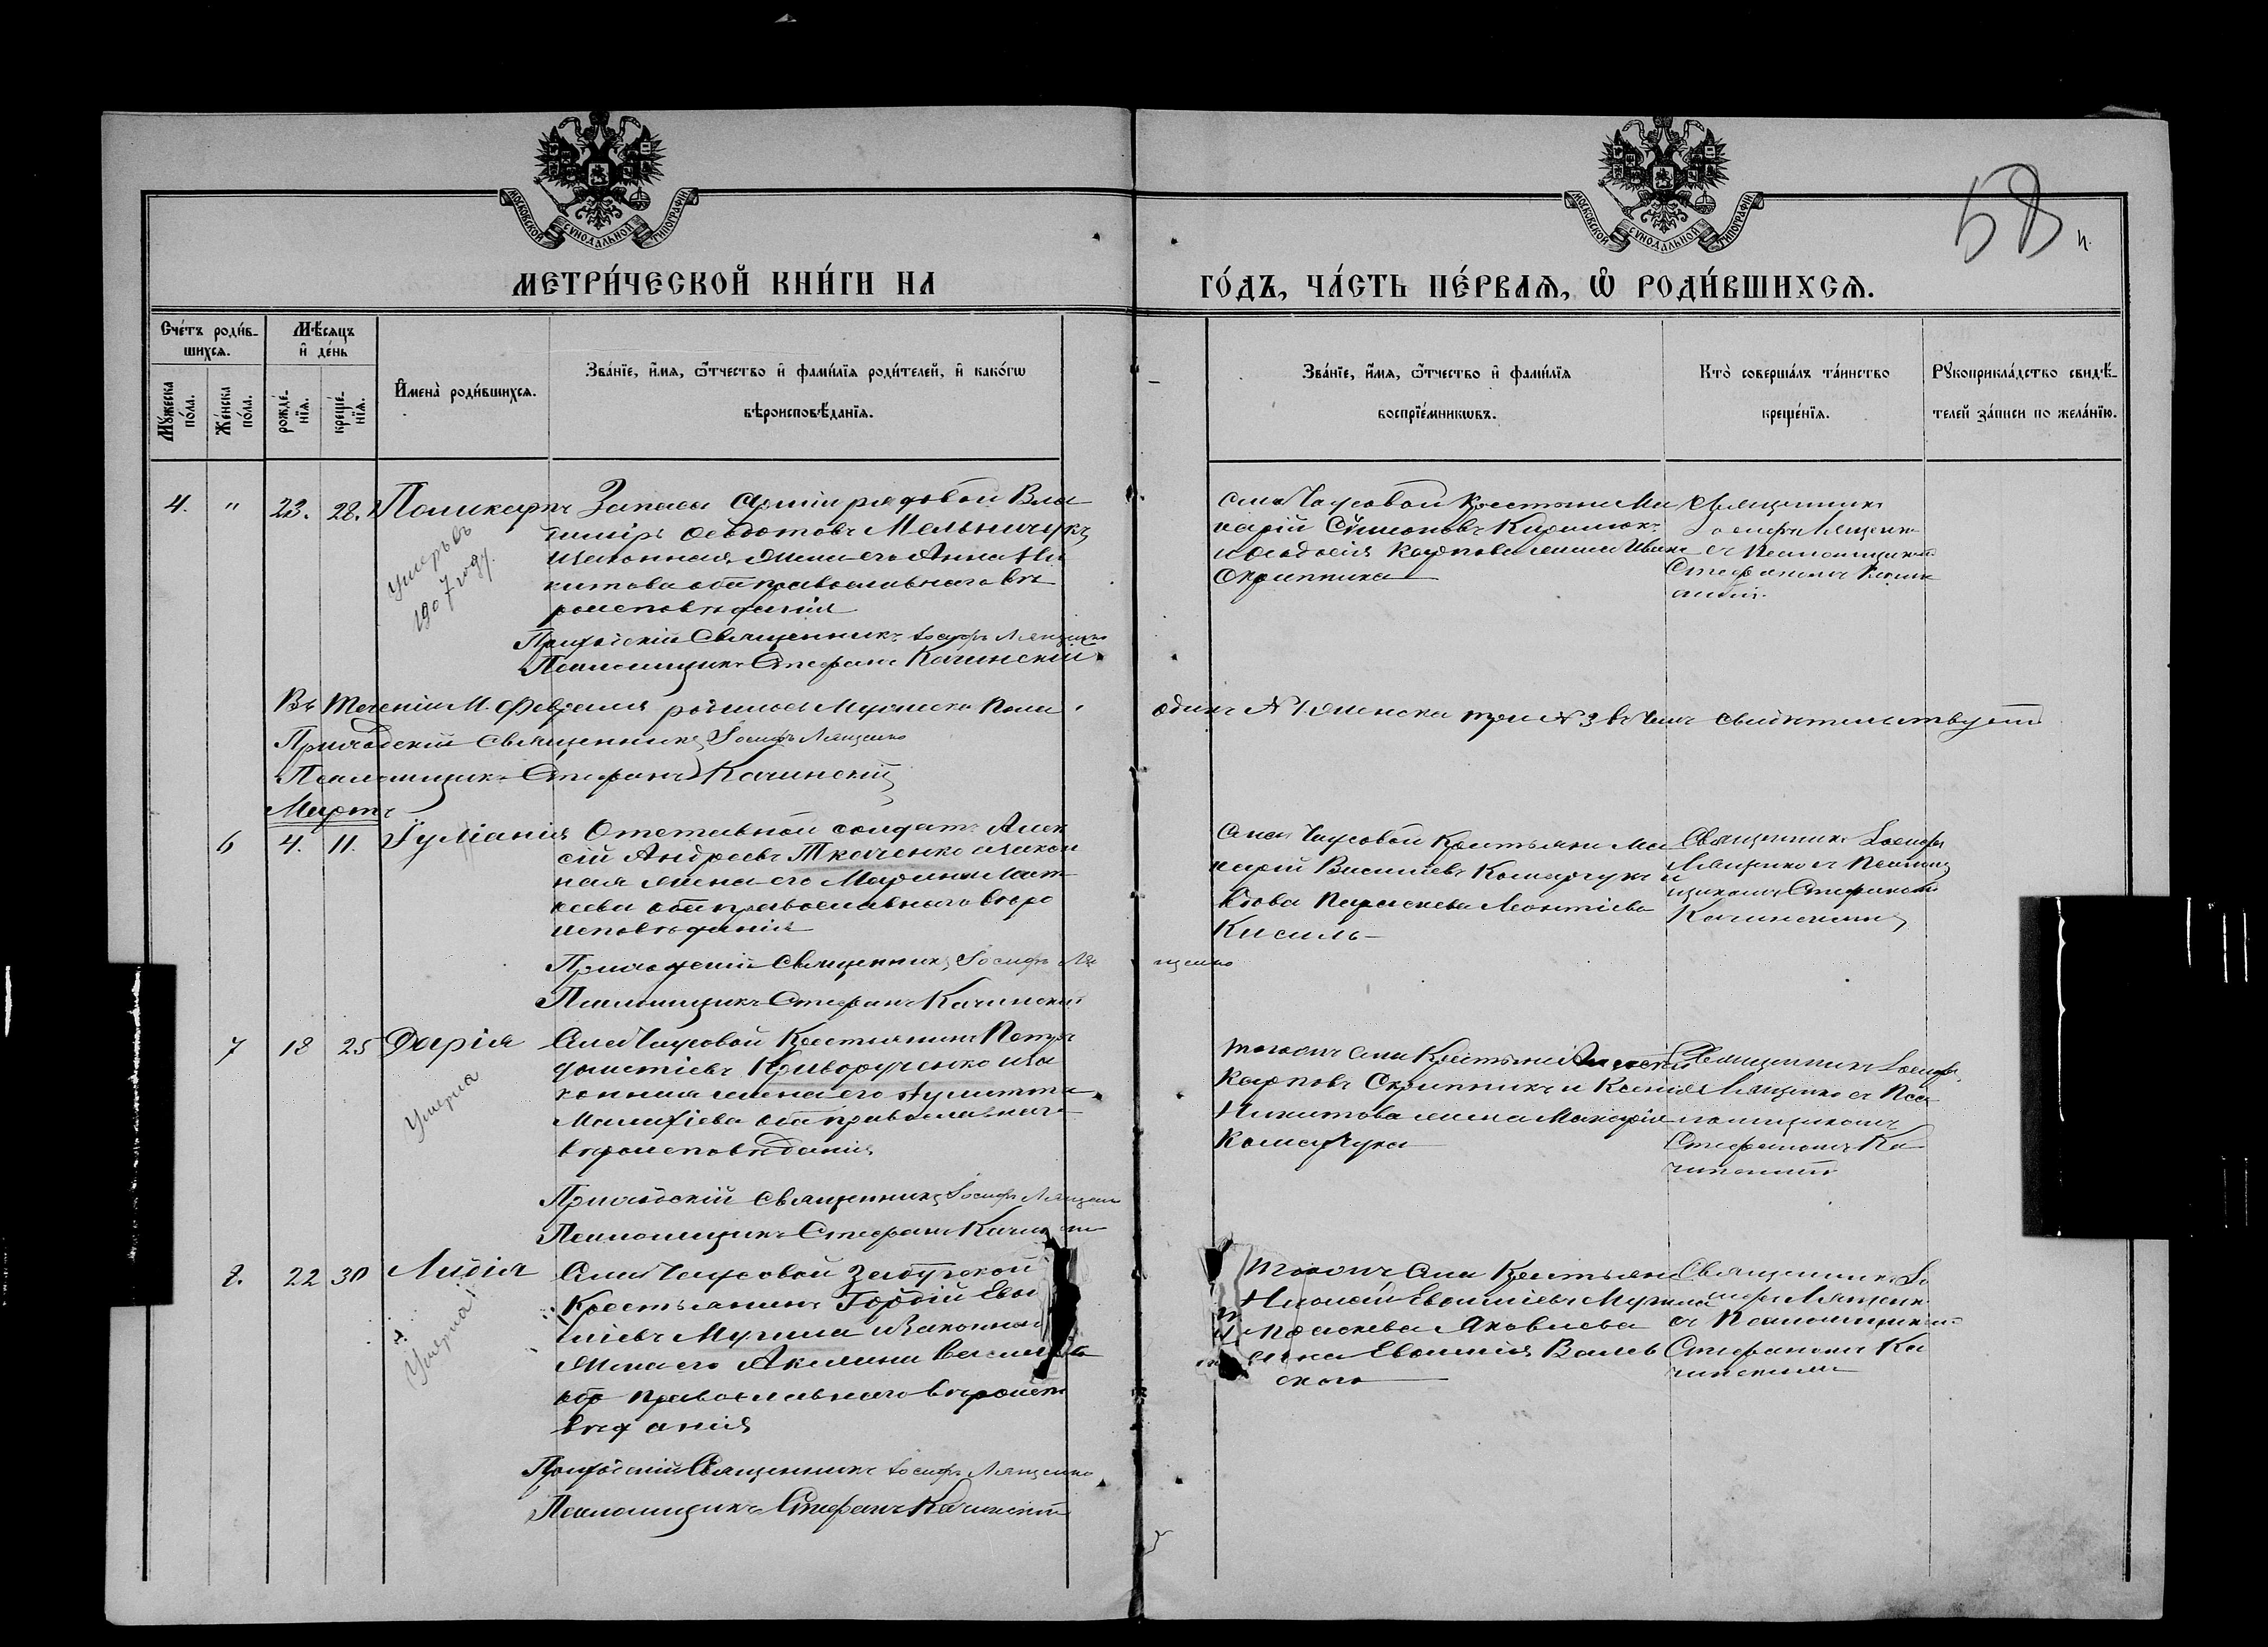 МОСКОВСКОЙ СУНОДАЛЬНОЙ ТИПОГРАФІИ.
МОСКОВСКОЙ СУНОДАЛЬНОЙ ТИПОГРАФІИ.
58
МЕТРИ́ЧЕСКОЙ КНИ́ГИ НА
ГО́ДЪ, ЧА́СТЬ ПЕ́РВАЯ, Ѡ РОДИ́ВШИХСЯ.
Сче́тъ роди́в-
шихся.
Мѣ́сяцъ
и де́нь
Му́жеска
по́ла.
Же́нска
по́ла.
рожде́-
нїя.
креще́-
нїя.
Имена̀ роди́вшихся.
Зва́нїе, и́мя, ѻ́тчество и фами́лїя роди́телей, и како́гѡ
вѣроисповѣ́данїя.
Зва́нїе, и́мя, ѻ́тчество и фами́лїя
воспрїе́мникѡвъ.
Кто̀ соверша́лъ та́инство
креще́нїя.
Рꙋкоприкла́дство свидѣ́-
телей за́писи по жела́нїю.
4. " 23. 28. Поликарпъ
умеръ въ
1907 году.
Запаса Арміи рядовой Вла
димиръ Ѳеодотовъ Мельничукъ
и законная жена его Анна Ни
китова оба православнаго вѣ
роисповѣданія
Приходскій Священникъ Іосифъ Лященко
Псаломщикъ Стефанъ Качинскій
села Чаусовой Крестьяне Ма
карій Симоновъ
и Ѳеодосія Карпова жена Ивана
Скрипника
Священникъ
Іосифъ Лященко
съ Псаломщикомъ
Стефаномъ Качин
скимъ.
Въ теченіи М. Февраля родилось Мужеска Пола
одинъ №1 женска три №3 въ чемъ свидѣтельствуемъ
Приходскій Священникъ Іосифъ Лященко
Псаломщикъ Стефанъ Качинскій
Мартъ
6 4. 11. Іуліанія
Отставной солдатъ Алек
сій Андреевъ Ткаченко и закон
ная жена его Марина
оба православнаго вѣро
исповѣданія
Приходскій Священникъ Іосифъ Ля
щенко
Псаломщикъ Стефанъ Качинскій
села Чаусовой Крестьяне Ма
карій Василіевъ Комарчукъ и
вдова Параскева Леонтіева
Кисиль
Священникъ Іосифъ
Лященко съ Псалом
щикомъ Стефаномъ
Качинскимъ
7 18 25 Дарія
Умерла
Села Чаусовой Крестьянинъ Петръ
Криворученко и за
конная жена его Іулитта
Малахіева оба православнаго
вѣроисповѣданія
Приходскій Священникъ Іосифъ Лященко
Псаломщикъ Стефанъ Качинскій
того же села Крестьяне Алексѣй
Карповъ Скрипникъ и Ксенія
Никитова жена Макарія
Комарчука
Священникъ Іосифъ
Лященко съ Пса
ломщикомъ
Стефаномъ Ка
чинскимъ
8. 22 30 Лидія
Умерла!
Села Чаусовой
Крестьянинъ Гордій Евѳи
міевъ Мугила и Законная
жена его Акилина
оба православнаго вѣроиспо
вѣданія
Приходскій Священникъ Іосифъ Лященко
Псаломщикъ Стефанъ Качинскій
того же села Крестьяне
Николай Евѳиміевъ Мугила
Параскева Яковлева
жена Евѳимія
ского
Священникъ Іо
сифъ Лященко
съ Псаломщикомъ
Стефаномъ Ка
чинскимъ